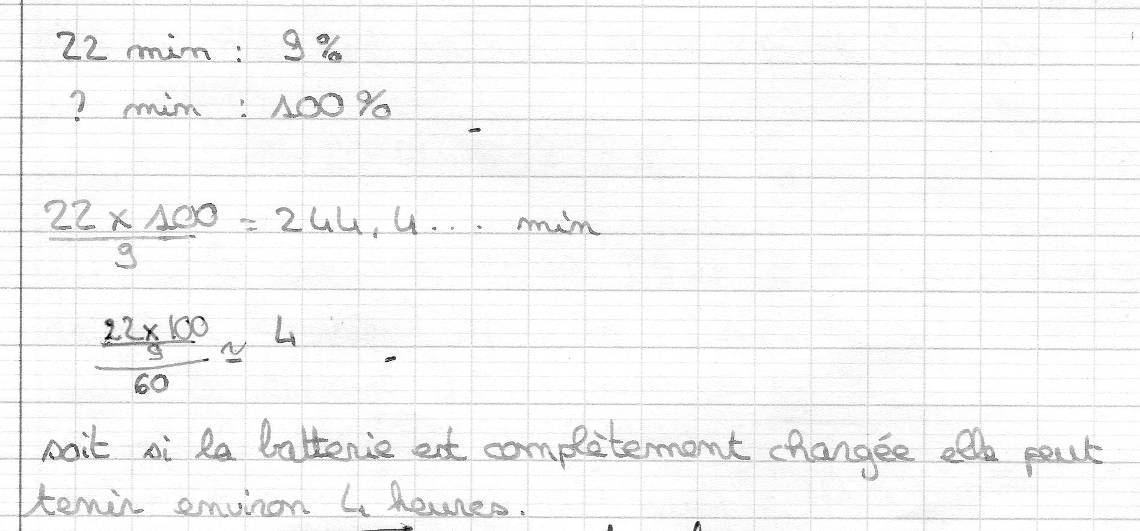 22 min : 9%
? min : 100%
22 x 100 / 9 = 244,4... min
22x100 / 9 / 60 ≃ 4
soit si la batterie est complètement chargée elle peut
tenir environ 4 heures.